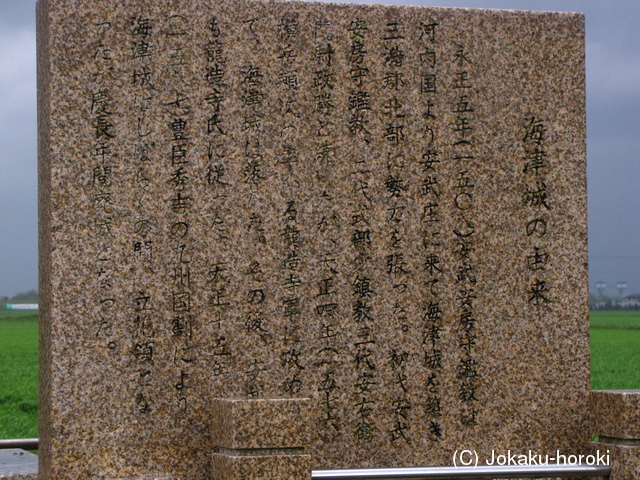 海津城の由来
永正五年(一五〇八)安武安房守鑑教は
河内国より安武庄に来て海津城を築き
三潴郡北部に勢力を張った。初代安武
安房守鑑教、二代式部少輔鎮教、三代安
が、天正四年(一五七六
る龍造寺軍に攻め
て、海津城は落ちた。その後、安武
も龍造寺氏に従った。天正十五年
(一五八七)豊臣秀吉の九州国割により
海津城はしばらくの間、立花領とな
ったが慶長年間廃城となった。
(C) Jokaku-horoki